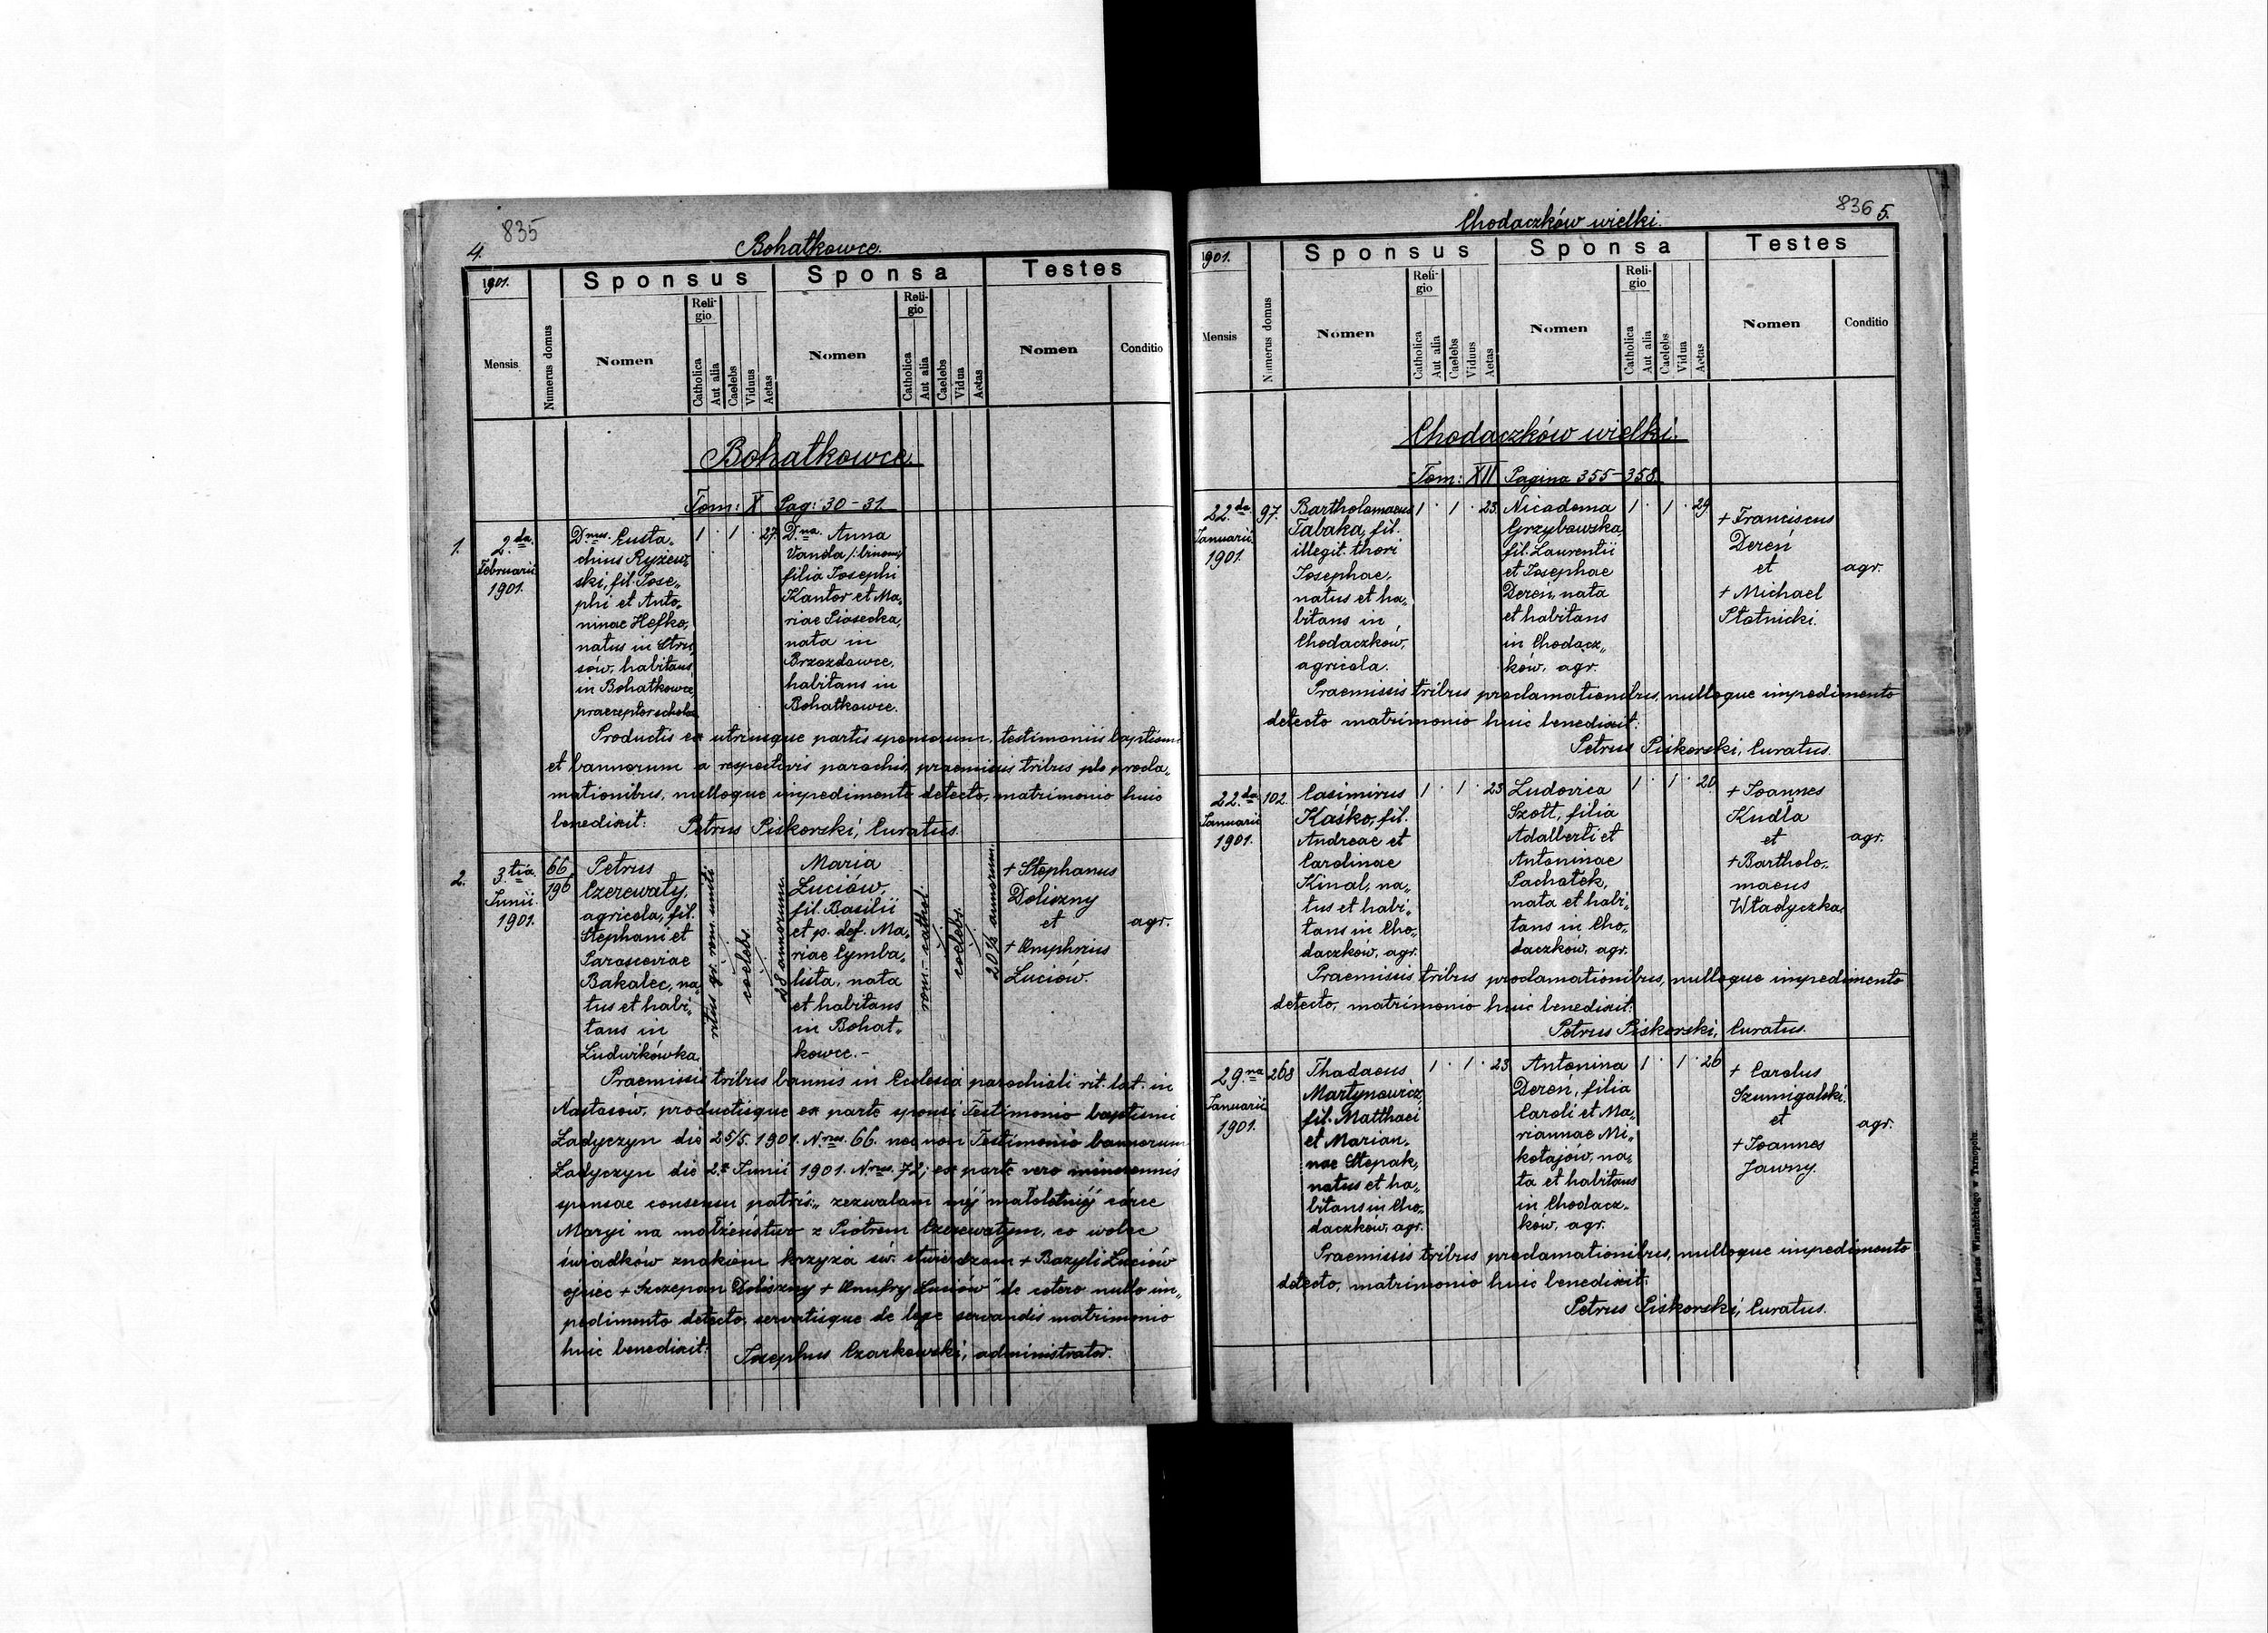 835
4.
Bohatkowce.
1901.
Sponsus
Sponsa
Testes
Mensis
Numerus domus
Nomen
Reli-
gio
Catholica
Aut alia
Caelebs
Viduus
Aetas
Nomen
Reli-
gio
Catholica
Aut alia
Caelebs
Vidua
Aetas
Nomen
Conditio
Bohatkowce
Tom: X Pag: 30-31.
1.
2.da
Februarii
1901.
D.nus Eusta„
chius Ryżew„
ski, fil. Jose„
phi et Anto„
ninae Hefko,
natus in Stru„
sów, habitans
in Bohatkowce
praeceptor schola
1 · 1 · 27.
D.na Anna
Vanda /: binom:/
filia Josephi
Kantor et Ma„
riae Piasecka,
nata in
Brzozdowce,
habitans in
Bohatkowce.
Productis ex utriusque partis sponsorum, testimoniis baptismi
et bannorum a respectivis parochis, praemissis tribus plo procla„
mationibus, nulloque impedimento detecto, matrimonio huic
benedixit: Petrus Piskorski, Curatus.
2.
3.tia
Junii
1901.
66
196
Petrus
Czerewaty,
agricola, fil.
Stephani et
Parasceviae
Bakalec, na„
tus et habi„
tans in
Ludwikówka.
ritus gr. rom. uniti
coelebs.
28 annorum.
Maria
Luciów,
fil. Basilii
et p. def. Ma„
riae Cymba„
lista, nata
et habitans
in Bohat„
kowce.-
rom.-cathol.
coelebs.
20 annorum.
+ Stephanus
Doliszny
et
+ Onuphrius
Luciow.
agr.
Praemissis tribus bannis in Ecclesia parochiali rit. lat. in
Nastasów, productisque ex parte sponsi Testimonio baptismi
Ładyczyn die 25/5. 1901. N.rus 66. nec non Testimonio bannorum
Ładyczyn die 2. Junii 1901. N.rus 72; ex parte vero minorennis
sponsae consensu patris: „zezwalam mej małoletniej córce
Maryi na małżeństwo z Piotrem Czerewatym, co wobec
świadków znakiem krzyża św. stwierdzam + Bazyli Luciów
ojciec + Szczepan Doliszny + Onufry Luciów" de cetero nullo im„
pedimento detecto, servatisque de lege servandis matrimonio
huic benedixit: Josephus Czarkowski, administrator.
836
5.
Chodaczków wielki.
1901.
Sponsus
Sponsa
Testes
Mensis
Numerus domus
Nomen
Reli-
gio
Catholica
Aut alia
Caelebs
Viduus
Aetas
Nomen
Reli-
gio
Catholica
Aut alia
Caelebs
Vidua
Aetas
Nomen
Conditio
Chodaczków wielki.
Tom: XII Pagina 355-358.
22.da
Januarii
1901.
97.
Bartholomaeus
Tabaka, fil.
illegit. thori
Josephae,
natus et ha„
bitans in
Chodaczków,
agricola.
1 · 1 · 23.
Nicodema
Grzybowska,
fil. Laurentii
et Josephae
Dereń, nata
et habitans
in Chodacz„
ków, agr.
1 · 1 · 29
+ Franciscus
Dereń
et
+ Michael
Płotnicki.
agr.
Praemissis tribus proclamationibus, nulloque impedimento
detecto matrimonio huic benedixit:
Petrus Piskorski, Curatus.
22.da
Januarii
1901.
102.
Casimirus
Kaśko, fil.
Andreae et
Carolinae
Kinal, na„
tus et habi„
tans in Cho„
daczków, agr.
1 · 1 · 23
Ludovica
Szott, filia
Adalberti et
Antoninae
Pachołek,
nata et habi„
tans in Cho„
daczków, agr.
1 · 1 · 20
+ Joannes
Kudła
et
+ Bartholo„
maeus
Władyczka
agr.
Praemissis tribus proclamationibus, nulloque impedimento
detecto, matrimonio huic benedixit:
Petrus Piskorski, Curatus.
29.na
Januarii
1901.
268
Thadaeus
Martynowicz,
fil. Matthaei
et Marian„
nae Stepak,
natus et ha„
bitans in Cho„
daczków, agr.
1 · 1 · 23
Antonina
Dereń, filia
Caroli et Ma„
riannae Mi„
kołajów, na„
ta et habitans
in Chodacz„
ków, agr.
1 · 1 · 26
+ Carolus
Szumigalski.
et
+ Joannes
Jawny.
agr.
Praemissis tribus proclamationibus, nulloque impedimento
detecto, matrimonio huic benedixit:
Petrus Piskorski, Curatus.
Z drukarni Leona Wierzbickiego w Tarnopolu.